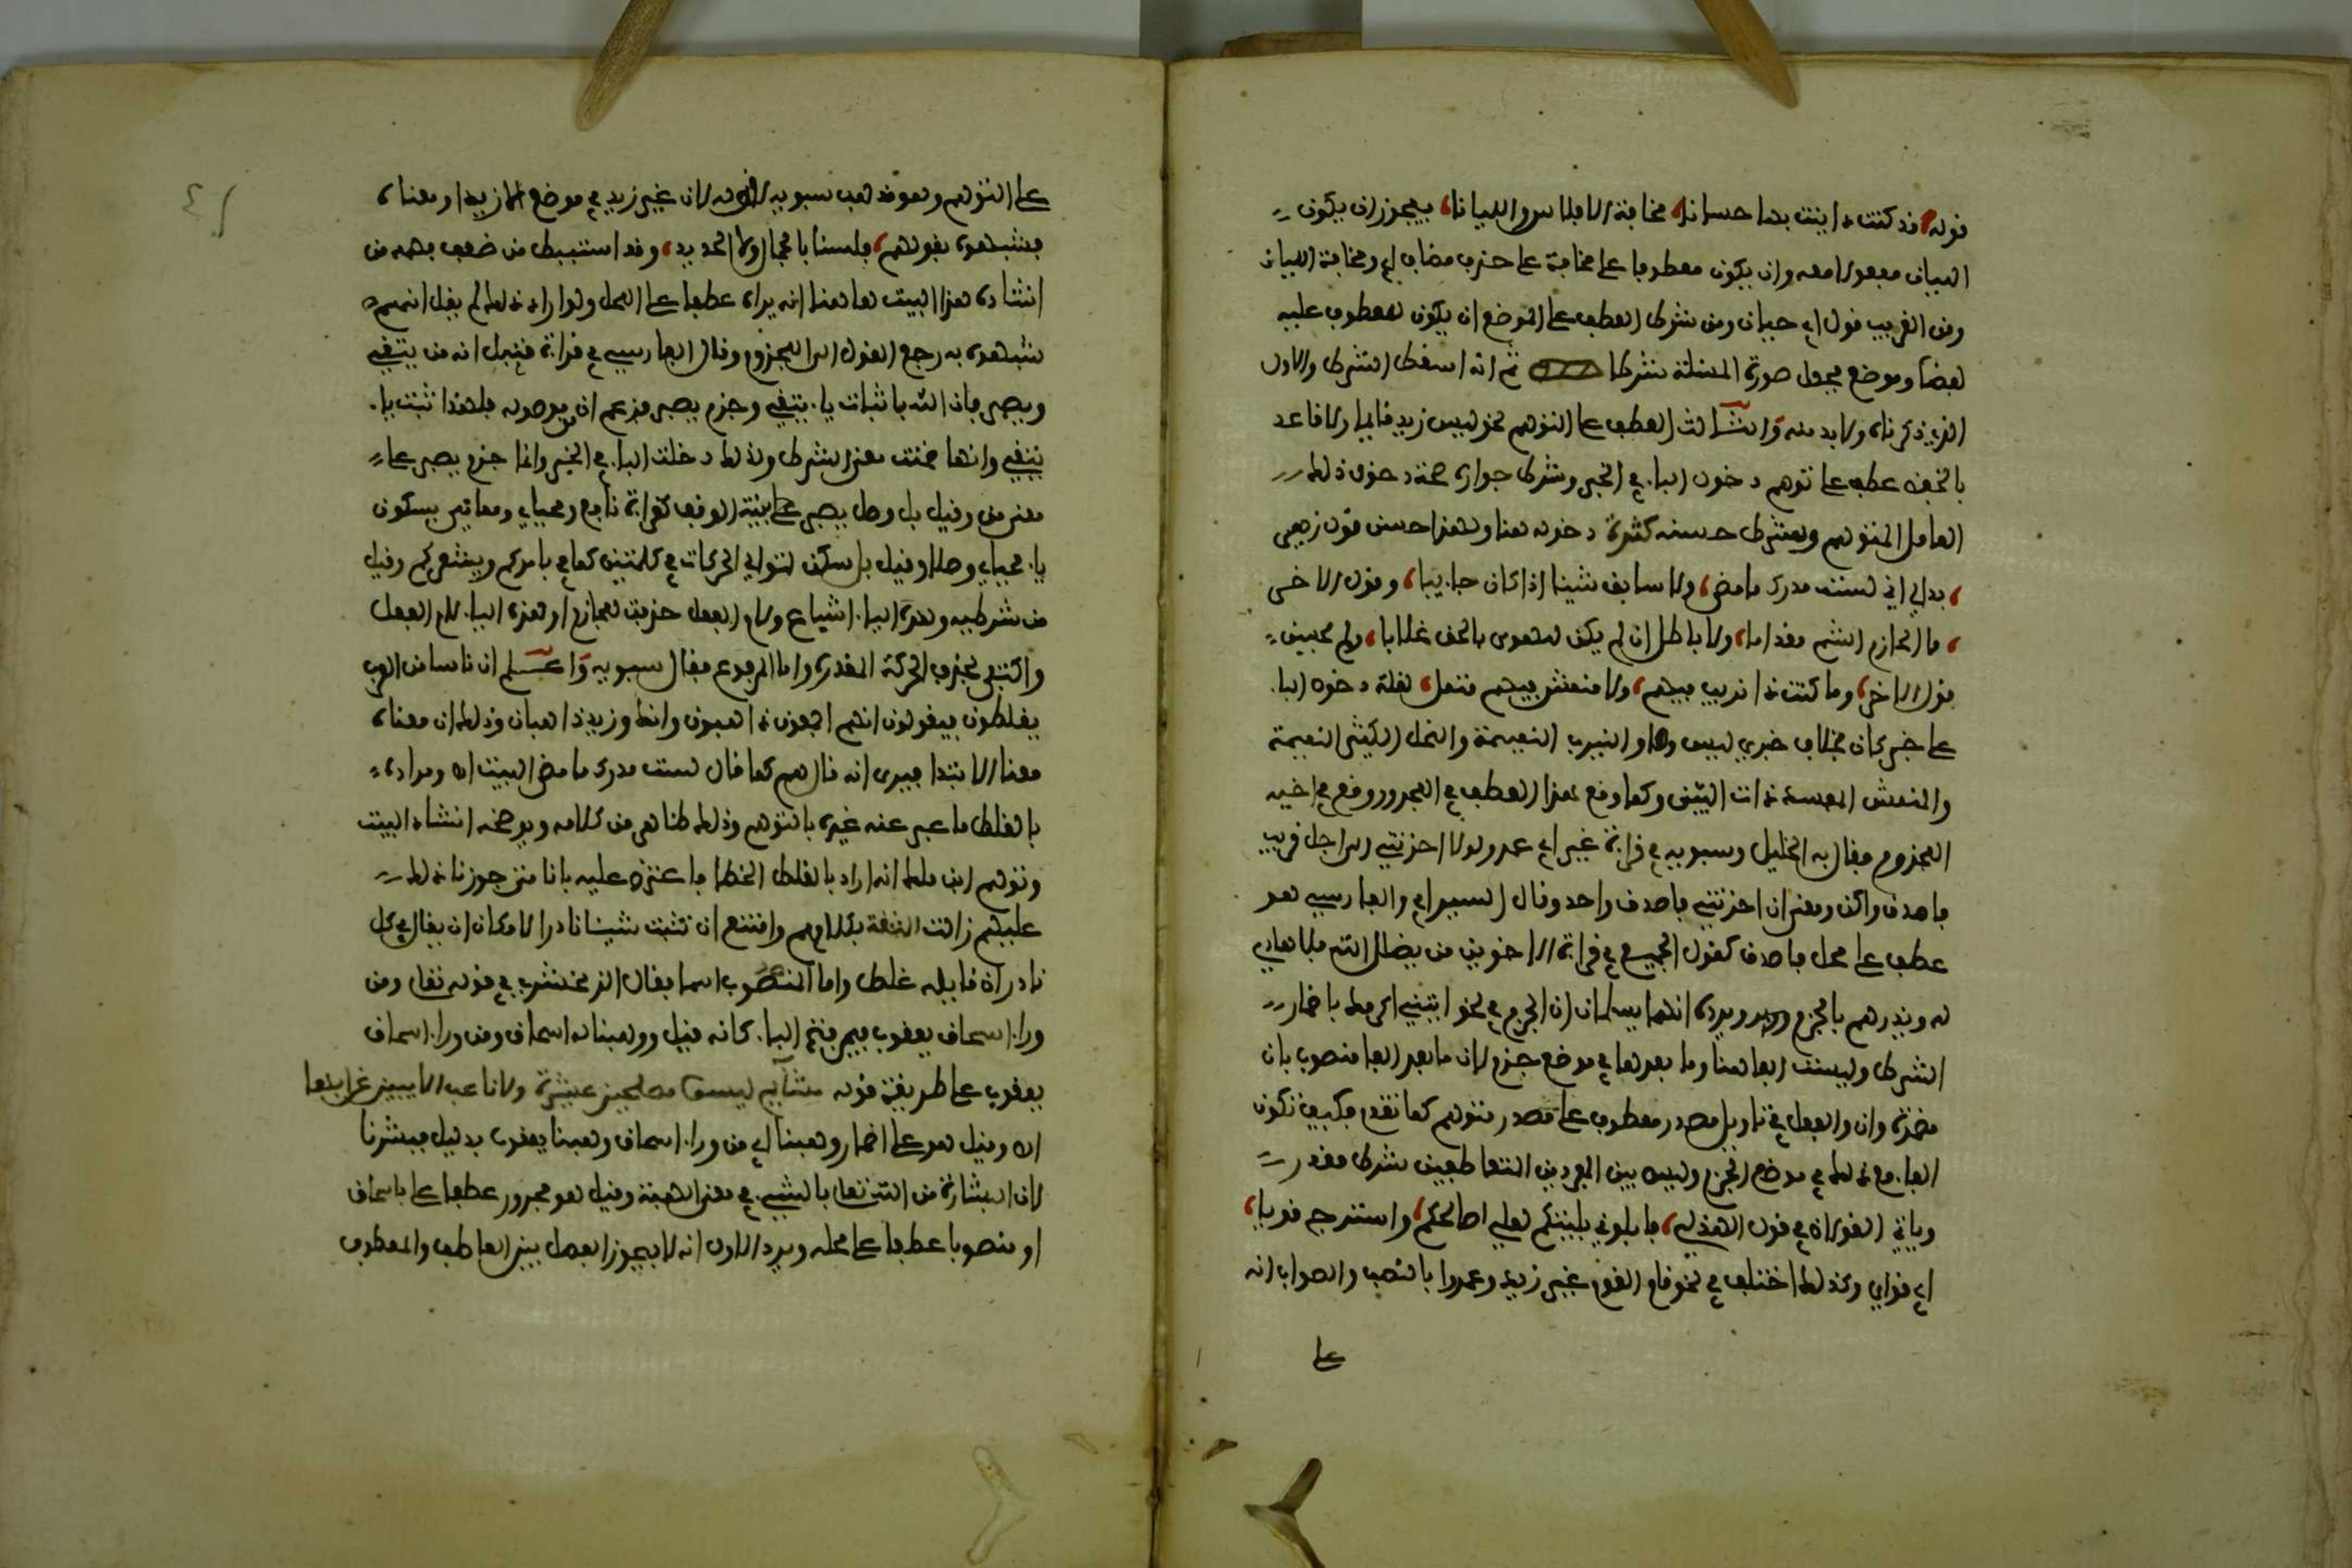 قوله قد كنت داينت بها حسانا مخافة الافلاس والليانا فيجوز ان يكون
الليان مفعولا معه وان يكون معطوفا على مخافة على حذف مضاف اي ومخافة الليان
ومن الغريب قول ابي حيان ومن شرط العطف على الموضع ان يكون للمعطوف عليه
لفظا وموضع فجعل صورة المسئلة شرطا ثم انه اسقط الشرط الاول
الذي ذكرناه ولا بد منه والثالث العطف على التوهم نحو ليس زيد قايما ولا قاعد
بالخفض عطف على توهم دخول الباء في الخبر وشرط جوازه صحة دخول ذلك
العامل المتوهم وشرط حسنه كثرة دخوله هنا ولهذا حسن قول زهير
بدا لي اني لست مدرك ما مضى ولا سابق شيئا اذا كان جاييا وقول الاخر
ما الحازم الشهم مقداما ولا بطل ان لم يكن للهوى بالحق غلابا ولم يحسن
قول الاخر وما كنت ذا نيرب فيهم ولا منمش فيهم منمل لقلة دخول الباء
على خبر كان بخلاف خبري ليس وما والنيرب النميمة والنمل الكثير النميمة
والمنمش المفسد ذات البين وكما وقع هذا العطف في المجرور وقع في اخيه
المجزوم فقال به الخليل وسيبويه في قراءة غير ابي عمرو لولا اخرتني الى اجل قريب
فاصدق واكن ومعنى ان اخرتني فاصدق واحد وقال السيرافي والفارسي هو
عطف على محل فاصدق كقول الجميع في قراءة الاخوين من يضلل الله فلا هادي
له ويذرهم بالجزم ويرده انهما يسلمان ان الجزم في نحو ايتني اكرمك باضمار
الشرط وليست الفاء هنا وما بعدها في موضع جزم لان ما بعد الفاء منصوب بان
مضمرة وان والفعل في تاويل مصدر معطوف على مصدر متوهم كما تقدم فكيف تكون
الفاء مع ذلك في موضع الجزم وليس بين المفردين المتعاطفين شرط مقدر
وياتي القولان في قول الهذلي فابلوني بليتكم لعلي اصالحكم واستدرج نويا
اي نواي وكذلك اختلف في نحو قام القوم غير زيد وعمروا بالنصب والصواب انه
على
على التوهم وهو مذهب سيبويه لقوله لان غير زيد في موضع الا زيدا ومعناه
فشبهوه بقولهم فلسنا بالجبال ولا الحديد وقد استنبط من ضعف فهمه من
انشاده هذا البيت هاهنا انه يراه عطفا على المحل ولو اراد ذلك لم يقل انهم
شبهوه به رجع القول الى المجزوم وقال الفارسي في قراءة قنبل انه من يتقي
ويصبر فان الله باثبات ياء يتقي وجزم يصبر فزعم ان من موصولة فلهذا ثبت ياء
يتقي وانها ضمنت معنى الشرط ولذلك دخلت الفاء في الخبر وانما جزم يصبر على
معنى من وقيل بل وصل يصبر على نية الوقف كقراءة نافع ومحياي ومماتي بسكون
ياء محياي وصلا وقيل بل سكن لتوالي الحركات في كلمتين كما في يامركم ويشعركم وقيل
من شرطية وهذه الياء اشباع ولام الفعل حذفت للجازم او هذه الياء لام الفعل
واكتفى بحذف الحركة المقدرة واما المرفوع فقال سيبويه واعلم ان ناسا من العرب
يغلطون فيقولون انهم اجمعون ذاهبون وانك وزيد ذاهبان وذلك ان معناه
معنى الابتداء فيرى انه قال هم كما قال لست مدرك ما مضى البيت اه ومراده
بالغلط ما عبر عنه غيره بالتوهم وذلك ظاهر من كلامه ويوضحه انشاد البيت
وتوهم ابن مالك انه اراد بالغلط الخطا فاعترض عليه بانا متى جوزنا ذلك
عليهم زالت الثقة بكلامهم وامتنع ان نثبت شيئا نادرا لامكان ان يقال في كل
نادر ان قايله غلط واما المنصوب اسما فقال الزمخشري في قوله تعالى ومن
وراء اسحاق يعقوب فيمن فتح الباء كانه قيل ووهبنا له اسحاق ومن وراء اسحاق
يعقوب على طريقة قوله مشائيم ليسوا مصلحين عشيرة ولا ناعب الا ببين غرابها
اه وقيل هو على اضمار وهبنا اي من وراء اسحاق وهبنا يعقوب بدليل فبشرنا
لان البشارة من الله تعالى بالشيء في معنى الهبة وقيل هو مجرور عطفا على باسحاق
او منصوبا عطفا على محله ويرد الاول انه لا يجوز الفصل بين العاطف والمعطوف